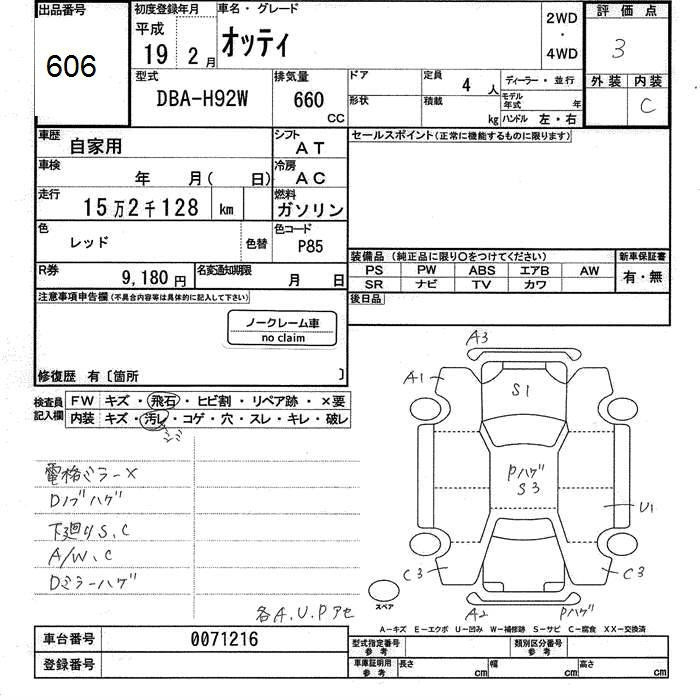 出品番号
606
初度登録年月
平成
19 2 月
車名・グレード
オッティ
2WD
・
4WD
評価点
3
外装 内装
C
型式
DBA-H92W
排気量
660
CC
ドア
形状
定員
4 人
積載
kg
ディーラー・並行
モデル年式 年
ハンドル 左・右
車歴
自家用
シフト
AT
車検
年 月( 日)
冷房
AC
走行
15万2千128 km
燃料
ガソリン
色
レッド
色替
色コード
P85
R券
9,180 円
名変通知期限
月 日
セールスポイント(正常に機能するものに限ります)
装備品 (純正品に限り○をつけてください)
PS PW ABS エアB AW
SR ナビ TV カワ
新車保証書
有・無
後日品
注意事項申告欄(不具合内容等は具体的に記入して下さい)
ノークレーム車
no claim
修復歴 有〔箇所 〕
検査員
記入欄
FW キズ・飛石・ヒビ割・リペア跡・×要
内装 キズ・汚レ・コゲ・穴・スレ・キレ・破レ
電格ミラー×
Dノブハゲ
下廻りS、C
A/W、C
Dミラーハゲ
各A.U.Pアセ
A3
A1
S1
Pハゲ
S3
U1
C3
C3
A2
Pハゲ
スペア
A-キズ E-エクボ U-凹み W-補修跡 S-サビ C-腐食 XX-交換済
車台番号
0071216
登録番号
型式指定番号
参考
類別区分番号
参考
車庫証明用
参考
長さ cm
幅 cm
高さ cm